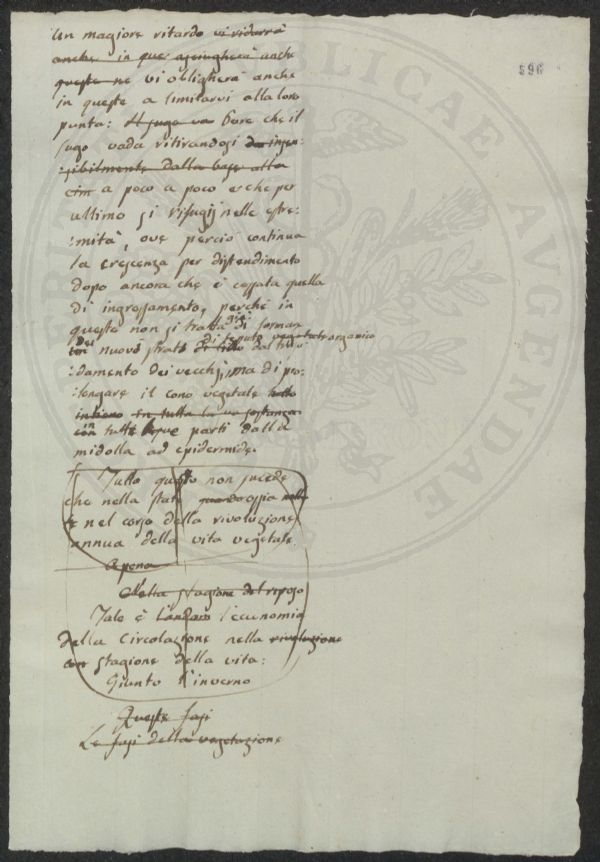 596
Un magiore ritardo vi ridurrà
anche in que asciugherà anche
queste ne vi obligherà anche
in queste a limitarvi alla loro
punta: Il sugo va Pare che il
sugo vada ritirandosi da insen:
:sibilmente dalla base alla
cim a poco a poco e che per
ultimo si rifugij nelle estre:
:mità, ove perciò continua
la crescenza per distendimento
dopo ancora che è cessata quella
di ingrossamento, perché in
queste non si tratta già di formar
dei nuovi strati di tessuto vegetal organico dal
:damento dei vecchj, ma di pro:
:longare il cono vegetale
intiero in tutta la sua sostanza
con in tutte le parti dalla
midolla ad epidermide.
Tutto questo non sucede
che nella state quando ossia nelle
e nel corso della rivoluzione
annua della vita vegetale
Apena
Nella stagione del riposo
Tale è l'andare l'ecunomia
della circolazione nella rivoluzione
con stagione della vita:
Giunto l'inverno
Queste fasi
Le fasi della vegetazione
PUBLICAE
AVGENDAE